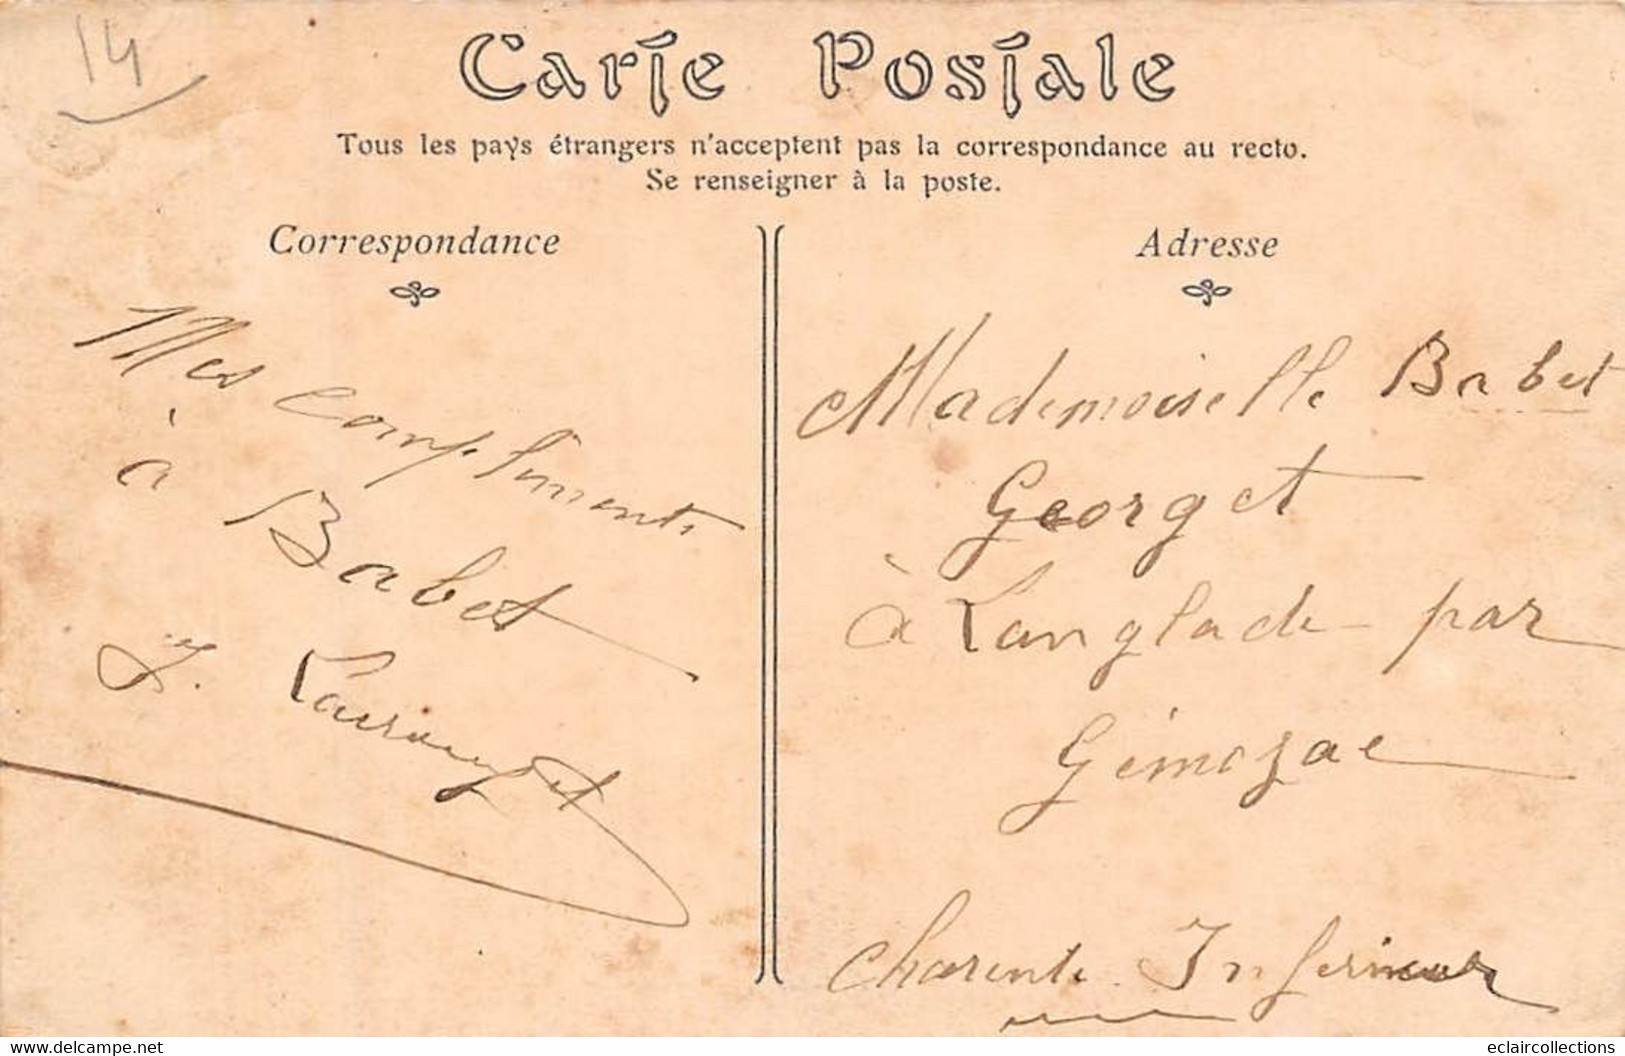 14
Carte Postale
Tous les pays étrangers n'acceptent pas la correspondance au recto.
Se renseigner à la poste.
Correspondance
Mes Compliments
à Babet
J.
Adresse
Mademoiselle Babet
Georget
à Langlade par
Gémozac
Charente Inférieure
www.delcampe.net
eclaircollections